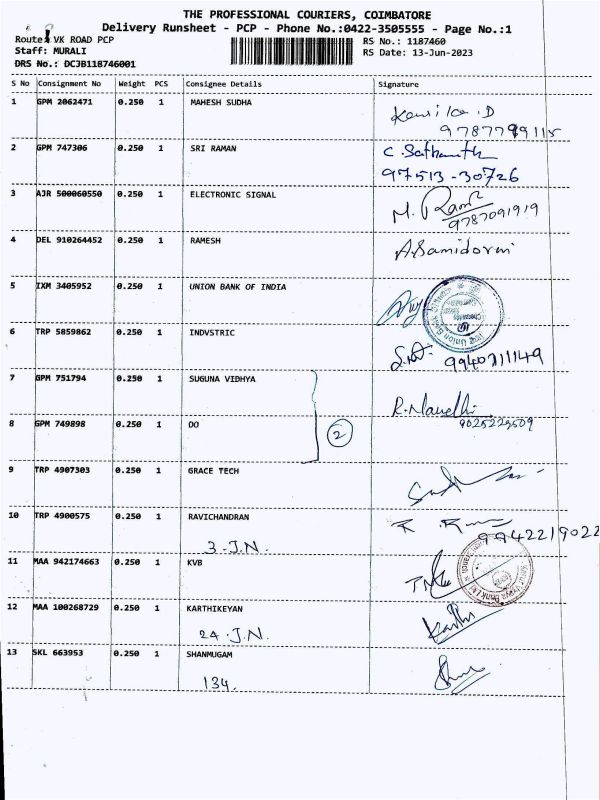 THE PROFESSIONAL COURIERS, COIMBATORE
Delivery Runsheet - PCP - Phone No.:0422-3505555 - Page No.:1
Route: VK ROAD PCP
RS No.: 1187460
Staff: MURALI
RS Date: 13-Jun-2023
DRS No.: DCJB118746001
S No Consignment No Weight PCS Consignee Details Signature
1 GPM 2062471 0.250 1 MAHESH SUDHA
2 GPM 747306 0.250 1 SRI RAMAN C. Sathanth
97513-30726
3 AJR 500060550 0.250 1 ELECTRONIC SIGNAL
9787091919
4 DEL 910264452 0.250 1 RAMESH
5 IXM 3405952 0.250 1 UNION BANK OF INDIA
6 TRP 5859862 0.250 1 INDVSTRIC
7 GPM 751794 0.250 1 SUGUNA VIDHYA
8 GPM 749898 0.250 1 DO 2
9025229509
9 TRP 4907303 0.250 1 GRACE TECH
10 TRP 4900575 0.250 1 RAVICHANDRAN
9942219022
3-J.N.
11 MAA 942174663 0.250 1 KVB
12 MAA 100268729 0.250 1 KARTHIKEYAN Karthi
24-J.N.
13 SKL 663953 0.250 1 SHANMUGAM
134.